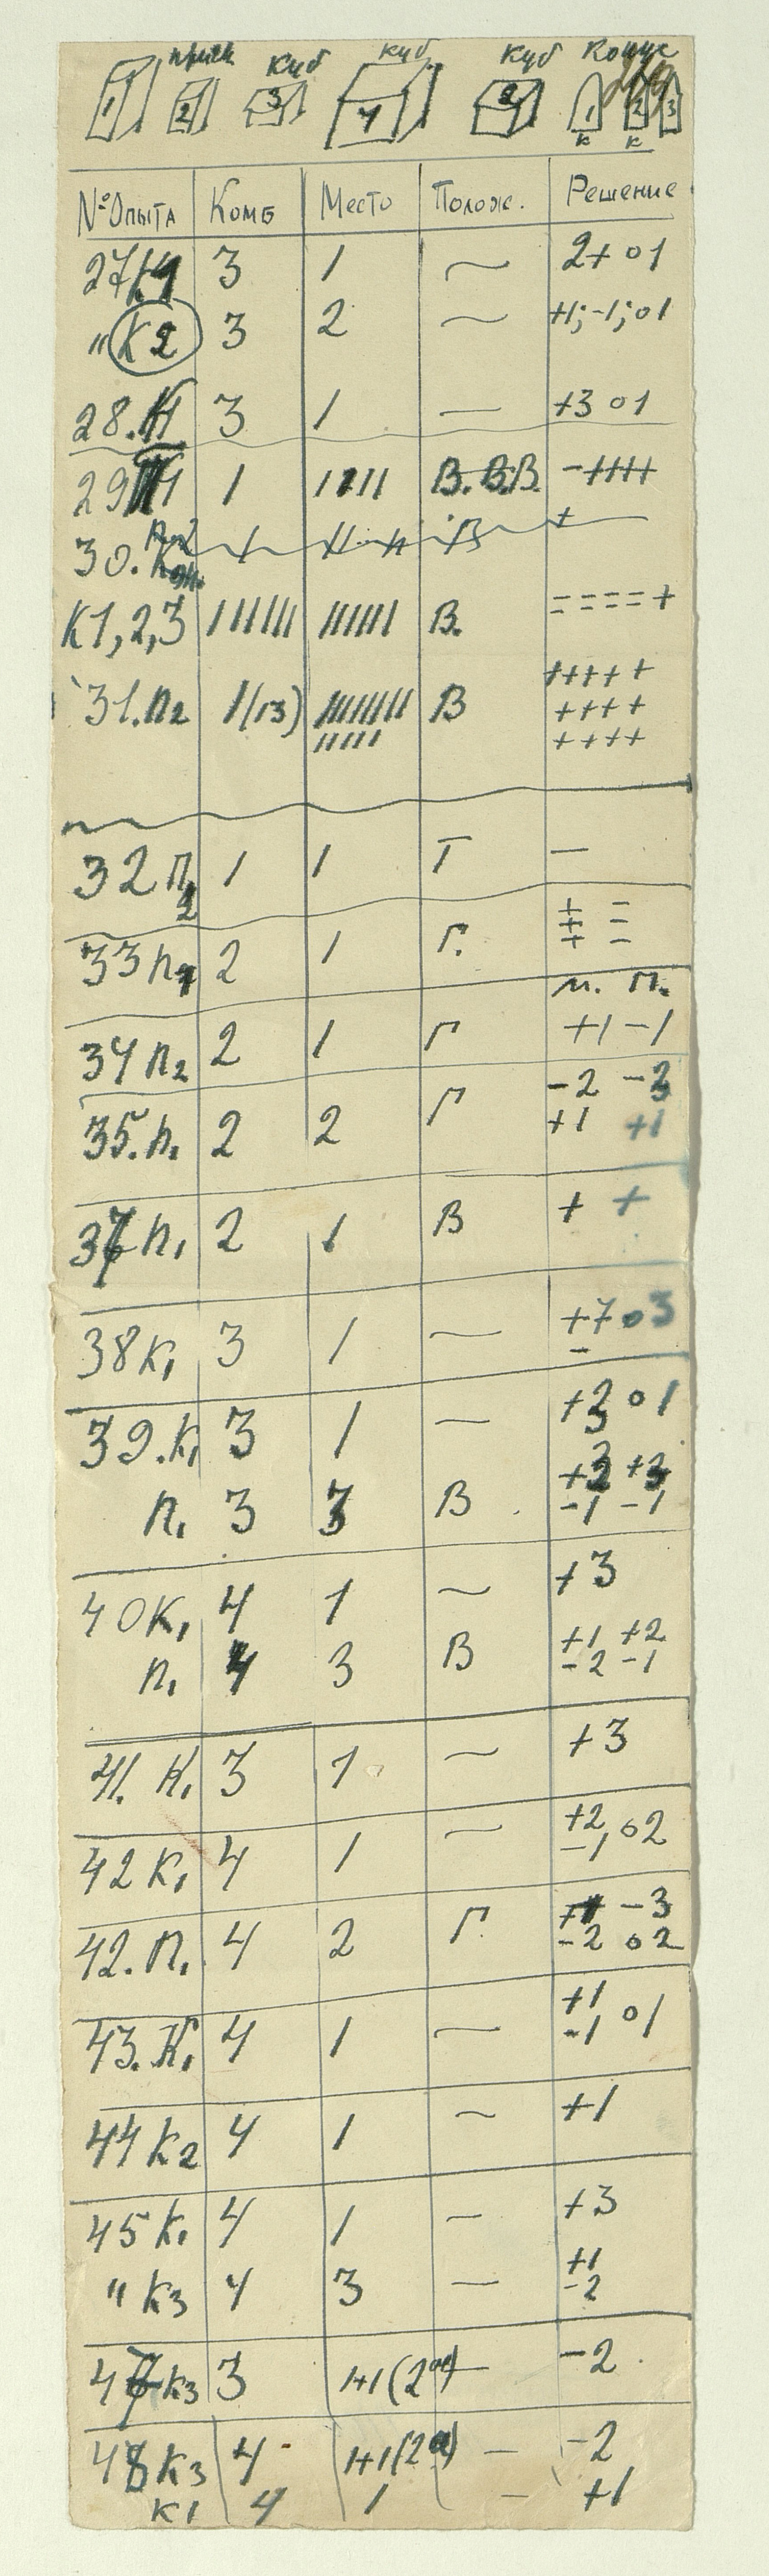 куб куб куб Конус
1 2 3 4 1 2 3
к к
№ Опыта Комб Место Полож. Решение
27 3 1 — 2+ 01
" К2 3 2 — +1; -1; 01
28. К1 3 1 — +3 01
29 1 1 1111 В. В.В. -++++
30. + В +
К1,2,3 В. ----+
31. П2 1(13) В +++++
++++
++++
32 П2 1 1 Г —
33 П 2 1 Г. + -
+ -
м. П.
34 П2 2 1 Г +1 -1
35. П1 2 2 Г -2 -3
+1 +1
П1 2 1 В + +
38 К1 3 1 — +7 03
-
39. К1 3 1 — + 01
П1 3 3 В
-1 -1
40 К1 4 1 — +3
П1 4 3 В +1 +2
-2 -1
41. К1 3 1 — +3
42 К1 4 1 — +2 02
-1
42. П1 4 2 Г. -3
-2 02
43. К1 4 1 — +1 01
-1
44 К2 4 1 — +1
45 К1 4 1 — +3
" К3 4 3 — +1
-2
К3 3 1+1 — -2
48 К3 4 1+1 — -2
К1 4 1 — +1